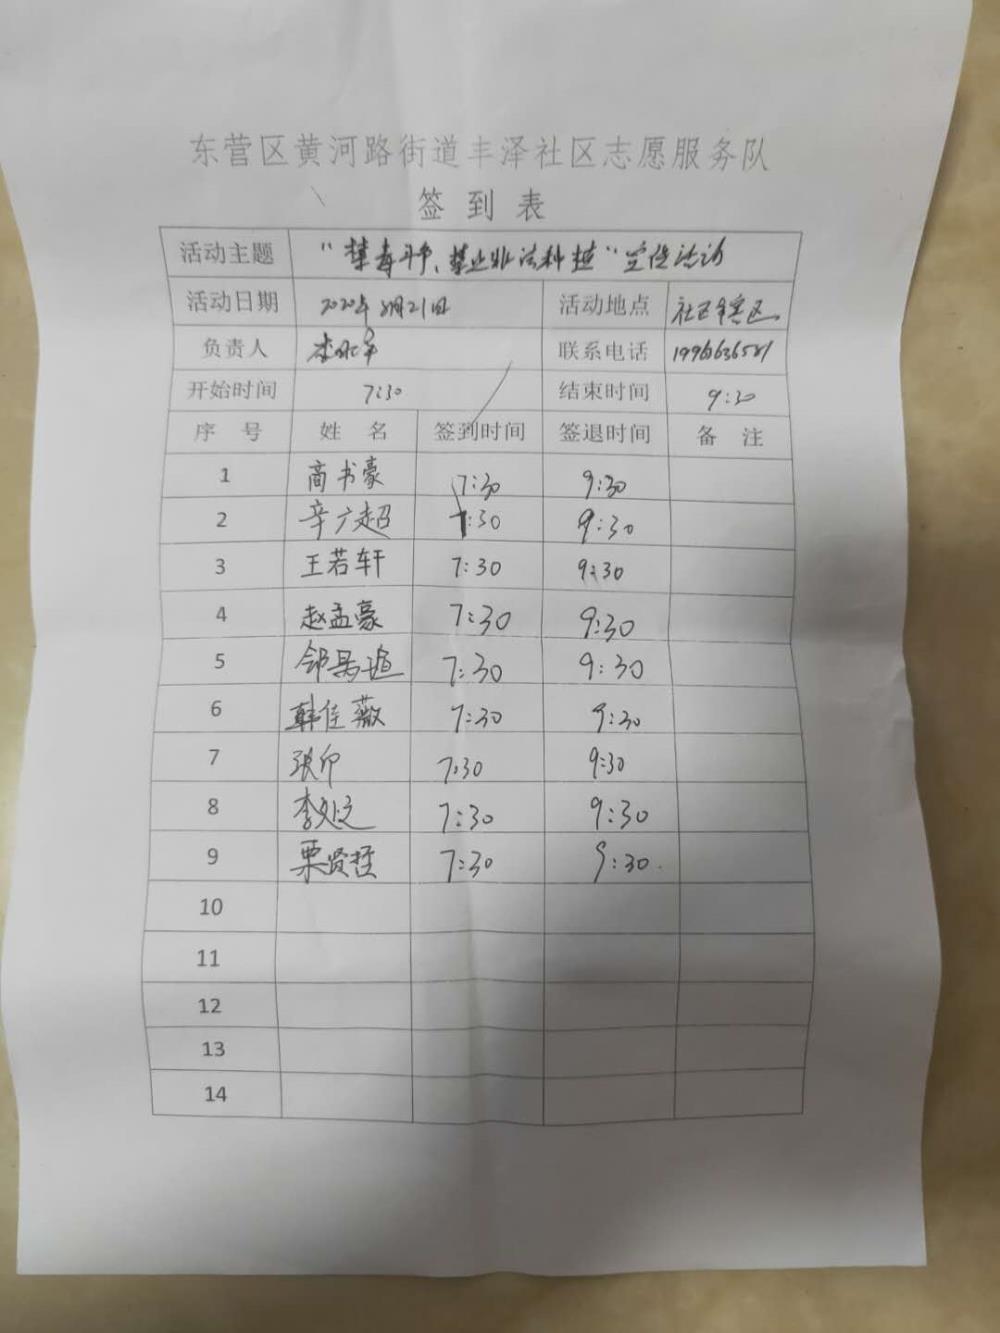 东营区黄河路街道丰泽社区志愿服务队
签 到 表
活动主题 “禁毒斗争、禁止非法种植”宣传活动
活动日期 2020年8月21日 活动地点 社区辖区
负责人 李 联系电话
开始时间 7:30 结束时间 9:30
序 号 姓 名 签到时间 签退时间 备 注
1 商书豪 7:30 9:30
2 辛广超 7:30 9:30
3 王若轩 7:30 9:30
4 赵孟豪 7:30 9:30
5 7:30 9:30
6 韩佳薇 7:30 9:30
7 张帅 7:30 9:30
8 李 7:30 9:30
9 栗贤哲 7:30 9:30
10
11
12
13
14